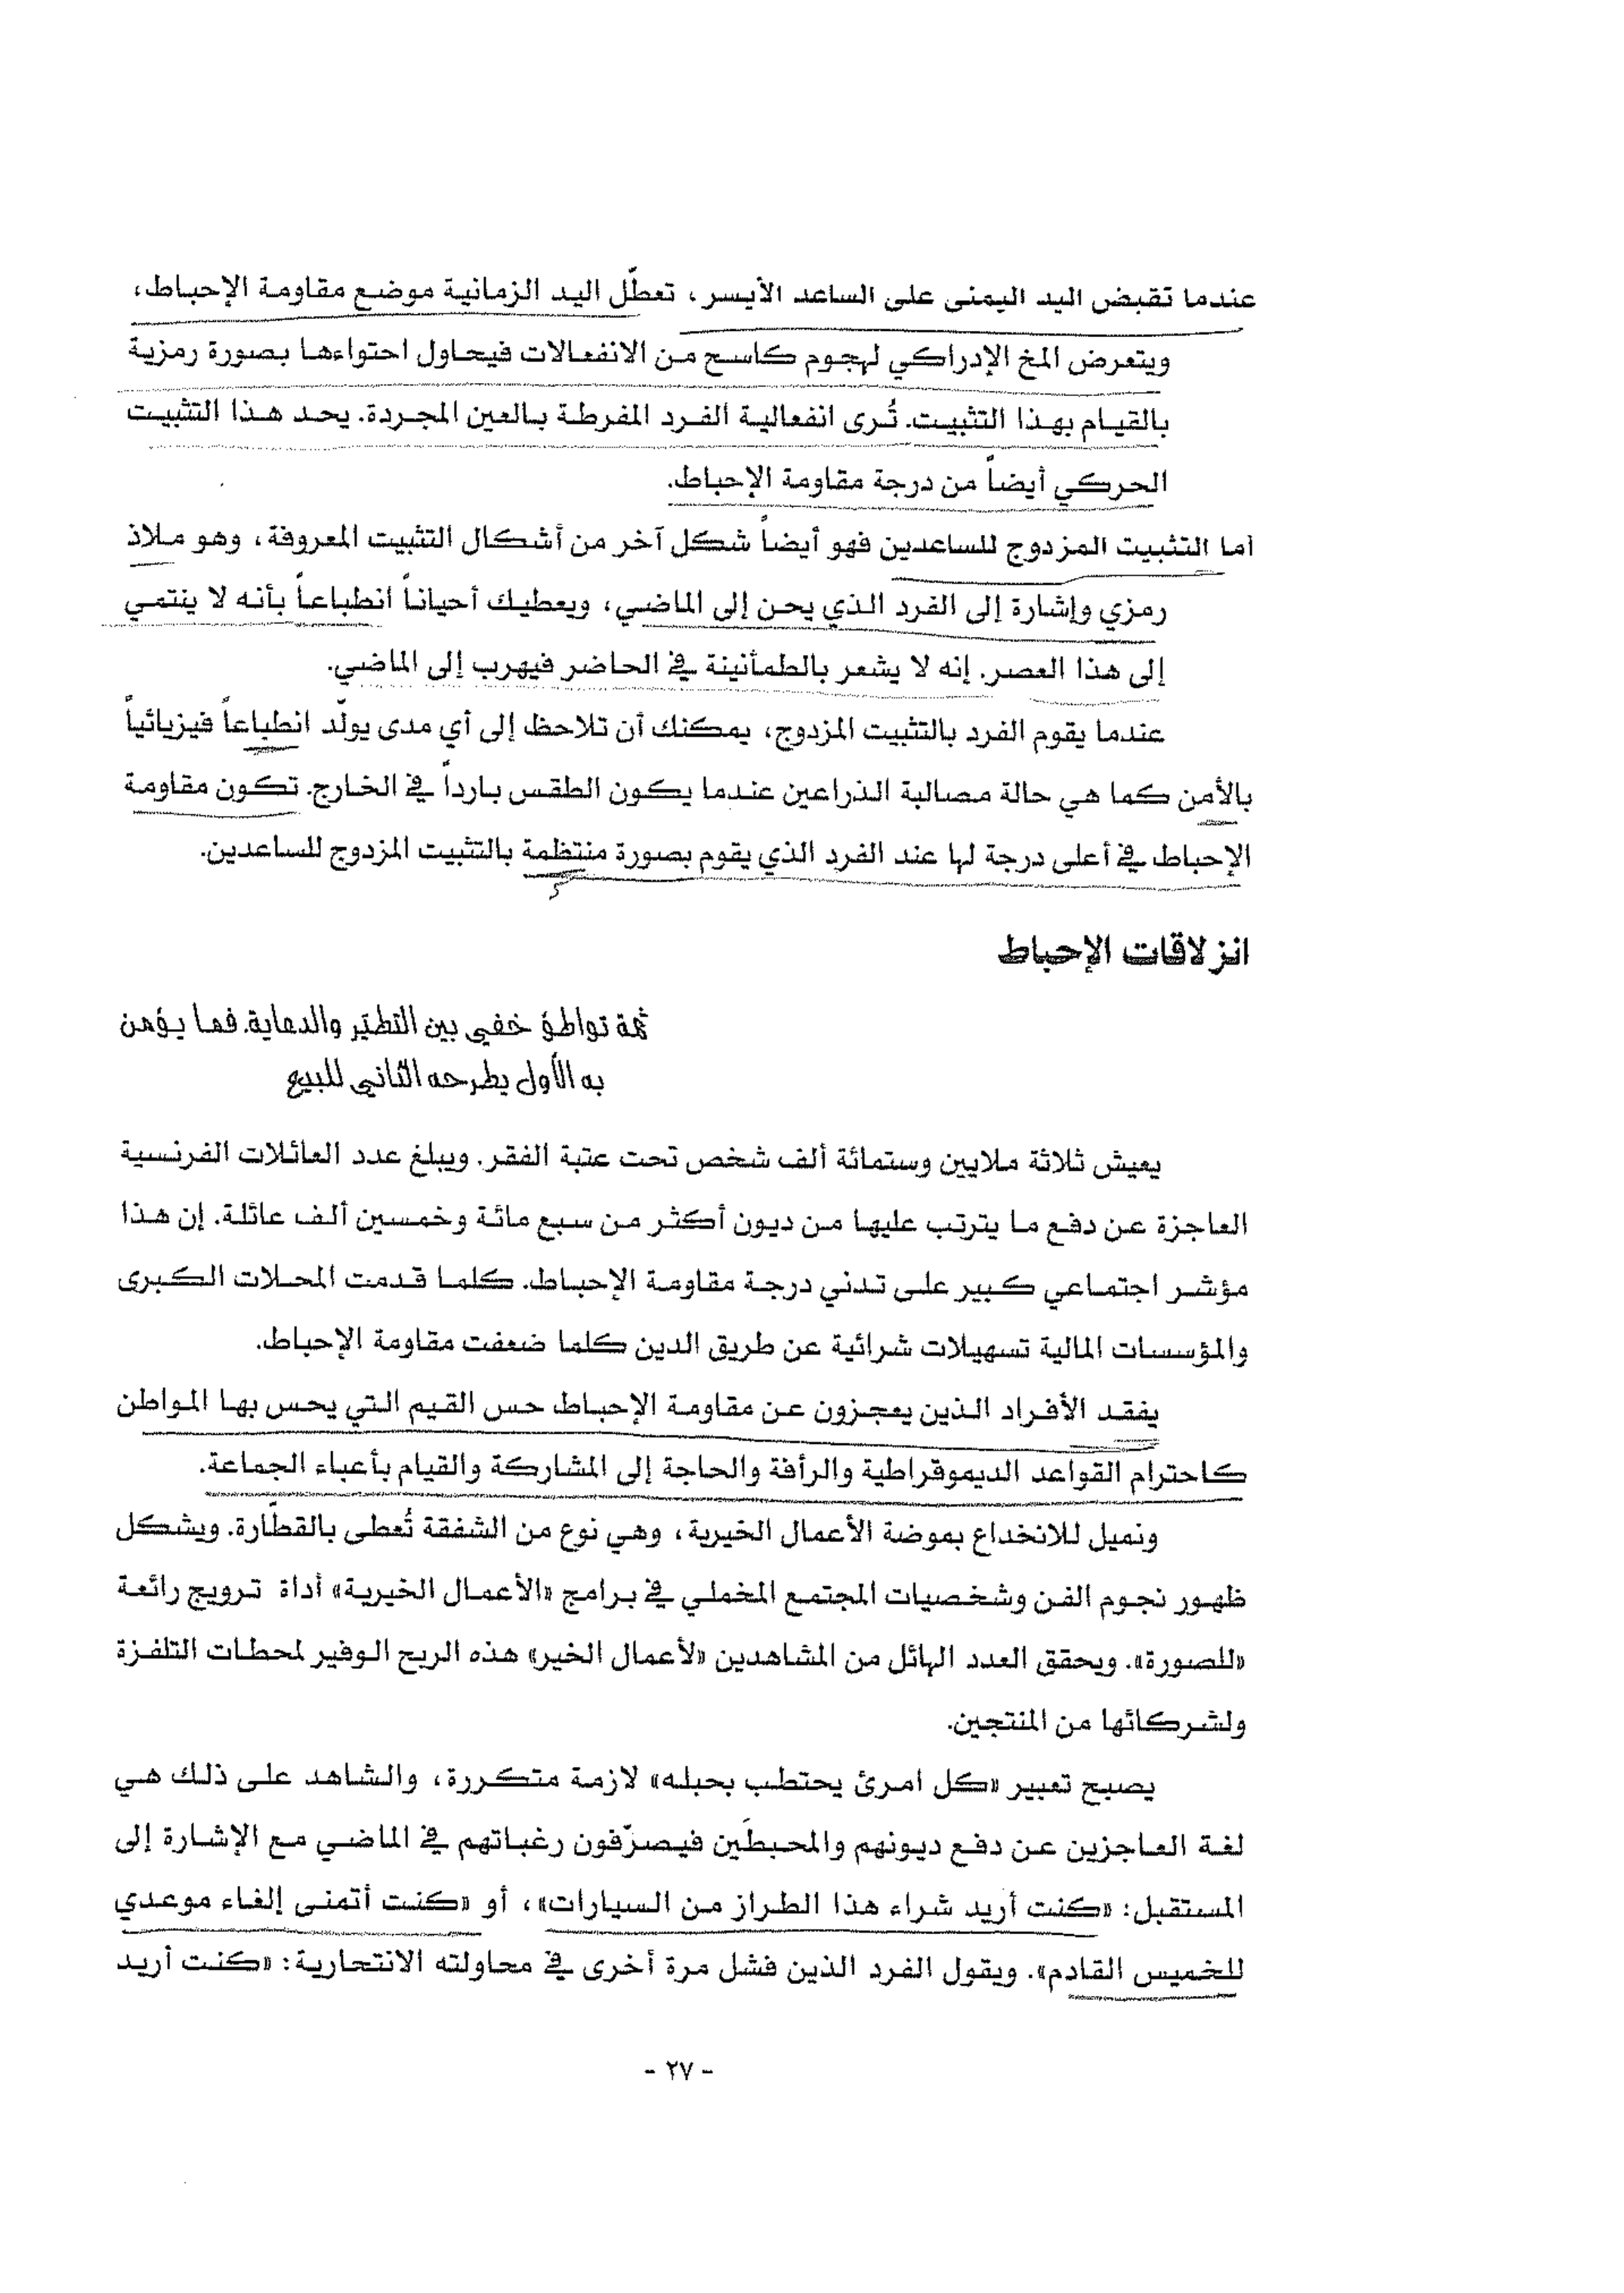 عندما تقبض اليد اليمنى على الساعد الأيسر، تعطّل اليد الزمانية موضع مقاومة الإحباط،
ويتعرض المخ الإدراكي لهجوم كاسح من الانفعالات فيحاول احتواءها بصورة رمزية
بالقيام بهذا التثبيت. تُرى انفعالية الفرد المفرطة بالعين المجردة. يحد هذا التثبيت
الحركي أيضاً من درجة مقاومة الإحباط.
أما التثبيت المزدوج للساعدين فهو أيضاً شكل آخر من أشكال التثبيت المعروفة، وهو ملاذ
رمزي وإشارة إلى الفرد الذي يحن إلى الماضي، ويعطيك أحياناً انطباعاً بأنه لا ينتمي
إلى هذا العصر. إنه لا يشعر بالطمأنينة في الحاضر فيهرب إلى الماضي.
عندما يقوم الفرد بالتثبيت المزدوج، يمكنك أن تلاحظ إلى أي مدى يولّد انطباعاً فيزيائياً
بالأمن كما هي حالة مصالبة الذراعين عندما يكون الطقس بارداً في الخارج. تكون مقاومة
الإحباط في أعلى درجة لها عند الفرد الذي يقوم بصورة منتظمة بالتثبيت المزدوج للساعدين.
انزلاقات الإحباط
ثمة تواطؤ خفي بين التطيّر والدعاية. فما يؤمن
به الأول يطرحه الثاني للبيع
يعيش ثلاثة ملايين وستمائة ألف شخص تحت عتبة الفقر. ويبلغ عدد العائلات الفرنسية
العاجزة عن دفع ما يترتب عليها من ديون أكثر من سبع مائة وخمسين ألف عائلة. إن هذا
مؤشر اجتماعي كبير على تدني درجة مقاومة الإحباط. كلما قدمت المحلات الكبرى
والمؤسسات المالية تسهيلات شرائية عن طريق الدين كلما ضعفت مقاومة الإحباط.
يفقد الأفراد الذين يعجزون عن مقاومة الإحباط حس القيم التي يحس بها المواطن
كاحترام القواعد الديموقراطية والرأفة والحاجة إلى المشاركة والقيام بأعباء الجماعة.
ونميل للانخداع بموضة الأعمال الخيرية، وهي نوع من الشفقة تُعطى بالقطّارة. ويشكل
ظهور نجوم الفن وشخصيات المجتمع المخملي في برامج «الأعمال الخيرية» أداة ترويج رائعة
«للصورة». ويحقق العدد الهائل من المشاهدين «لأعمال الخير» هذه الربح الوفير لمحطات التلفزة
ولشركائها من المنتجين.
يصبح تعبير «كل امرئ يحتطب بحبله» لازمة متكررة، والشاهد على ذلك هي
لغة العاجزين عن دفع ديونهم والمحبطَين فيصرّفون رغباتهم في الماضي مع الإشارة إلى
المستقبل: «كنت أريد شراء هذا الطراز من السيارات»، أو «كنت أتمنى إلغاء موعدي
للخميس القادم». ويقول الفرد الذين فشل مرة أخرى في محاولته الانتحارية: «كنت أريد
- ٢٧ -